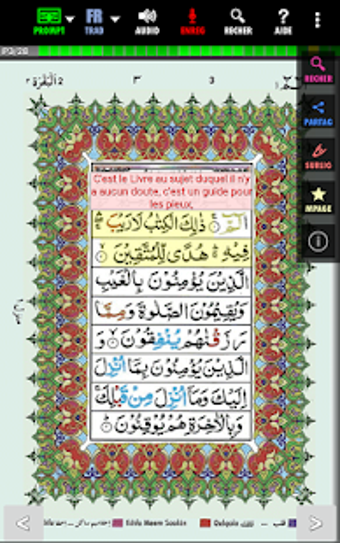 PROMPT
FR
TRAD
AUDIO
ENREG
RECHER
AIDE
P3/28
٢ اَلْبَقَرَة ٢
٣
3
RECHER
PARTAG
SURLIG
MPAGE
C'est le Livre au sujet duquel il n'y
a aucun doute, c'est un guide pour
les pieux,
الٓمّٓ ذٰلِكَ الْكِتٰبُ لَا رَيْبَ
فِيْهِ هُدًى لِّلْمُتَّقِيْنَ
الَّذِيْنَ يُؤْمِنُوْنَ بِالْغَيْبِ
وَيُقِيْمُوْنَ الصَّلٰوةَ وَمِمَّا
رَزَقْنٰهُمْ يُنْفِقُوْنَ وَ
الَّذِيْنَ يُؤْمِنُوْنَ بِمَآ اُنْزِلَ
اِلَيْكَ وَمَآ اُنْزِلَ مِنْ قَبْلِكَ
وَبِالْاٰخِرَةِ هُمْ يُوْقِنُوْنَ
Idhfa Meem Saakin
Qalqala
قلب